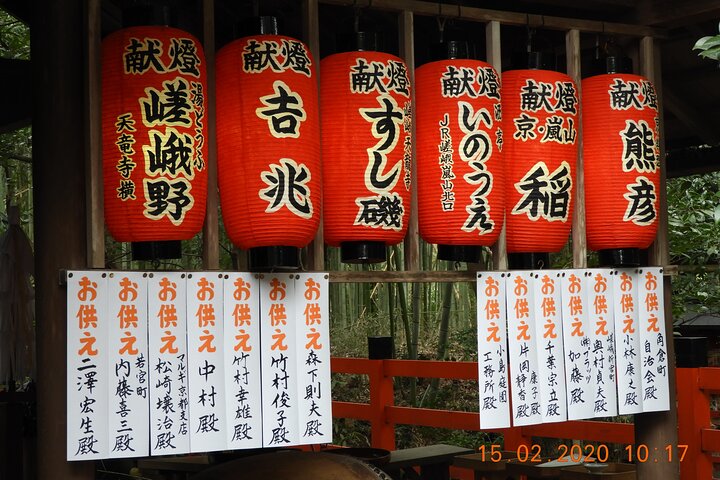 献燈
湯どうふ
嵯峨野
天竜寺横
献燈
吉兆
献燈
嵯峨天竜寺
すし磯
献燈
酒寿
いのうえ
JR嵯峨嵐山駅北口
献燈
京・嵐山
稲
献燈
熊彦
お供え
二澤宏生殿
お供え
内藤喜三殿
お供え
若宮町
松崎壌治殿
お供え
中村殿
お供え
竹村幸雄殿
お供え
竹村俊子殿
お供え
森下則夫殿
お供え
小島庭園
工務所殿
お供え
片岡靜哉殿
お供え
康子
千葉宗立殿
お供え
加藤殿
お供え
嵯峨新宮町
奥村貞夫殿
お供え
小林康之殿
お供え
内倉町
自治会殿
15.02.2020 10:17